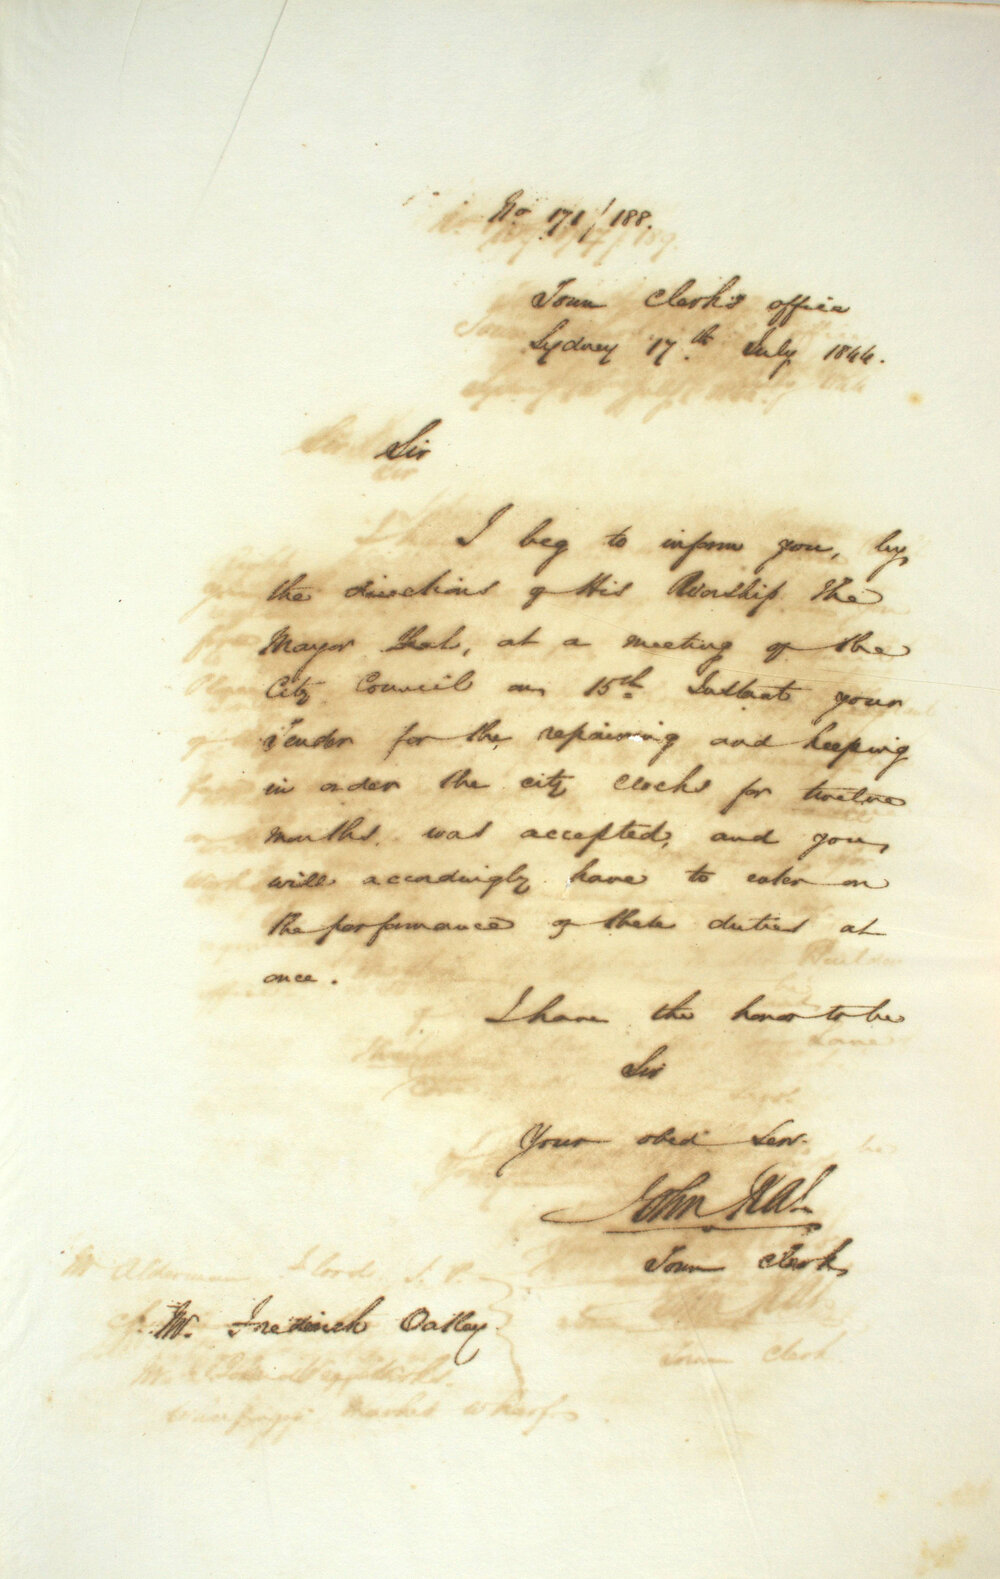 No 171/188.
Town Clerk's office
Sydney 17th July 1844.
Sir
I beg to inform you, by
the directions of His Worship The
Mayor that, at a meeting of the
City Council on 15th Instant your
Tender for the repairing and keeping
in order the city clocks for twelve
months, was accepted, and you,
will accordingly have to enter on
the performance of these duties at
once.
I have the honor to be
Sir
Your obed Serv.
John
Town Clerk
Mr. Frederick Oatley
Town Clerk